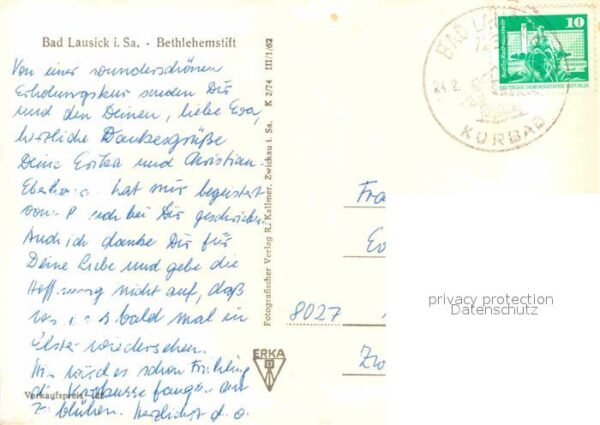 Bad Lausick i. Sa. - Bethlehemstift
Von einer wunderschönen
Erholungskur senden Dir
und den Deinen, liebe Eva,
herzliche Dankesgrüße
Deine Erika und Christian.
hat mir begeistert
von bei Dir geschrieben.
Auch ich danke Dir für
Deine Liebe und gebe die
Hoffnung nicht auf, daß
bald mal in
Elster wiedersehen.
wird es schon Frühling
die fangen an
zu blühen. Herzlichst d. o.
Verkaufspreis
Fotografischer Verlag R. Kallmer, Zwickau i. Sa. K 2/74 III/1/62
ERKA
BAD LAU
KURBAD
10
DEUTSCHE DEMOKRATISCHE REPUBLIK
Fra
8027
Zw
privacy protection
Datenschutz